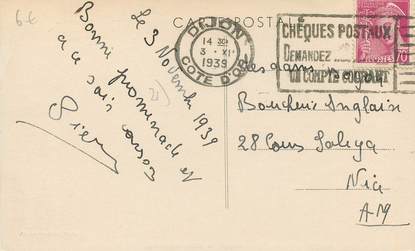 6€
CARTE POSTALE
DIJON
14 30
3 - XI
1939
COTE D'OR
CHÈQUES POSTAUX
DEMANDEZ
UN COMPTE COURANT
POSTES
70c
Le 3 Novembre 1939
Bonne promenade et
a ce soir
Pierre
Mesdames
Boucherie Anglaise
28 Cours Saleya
Nice
AM